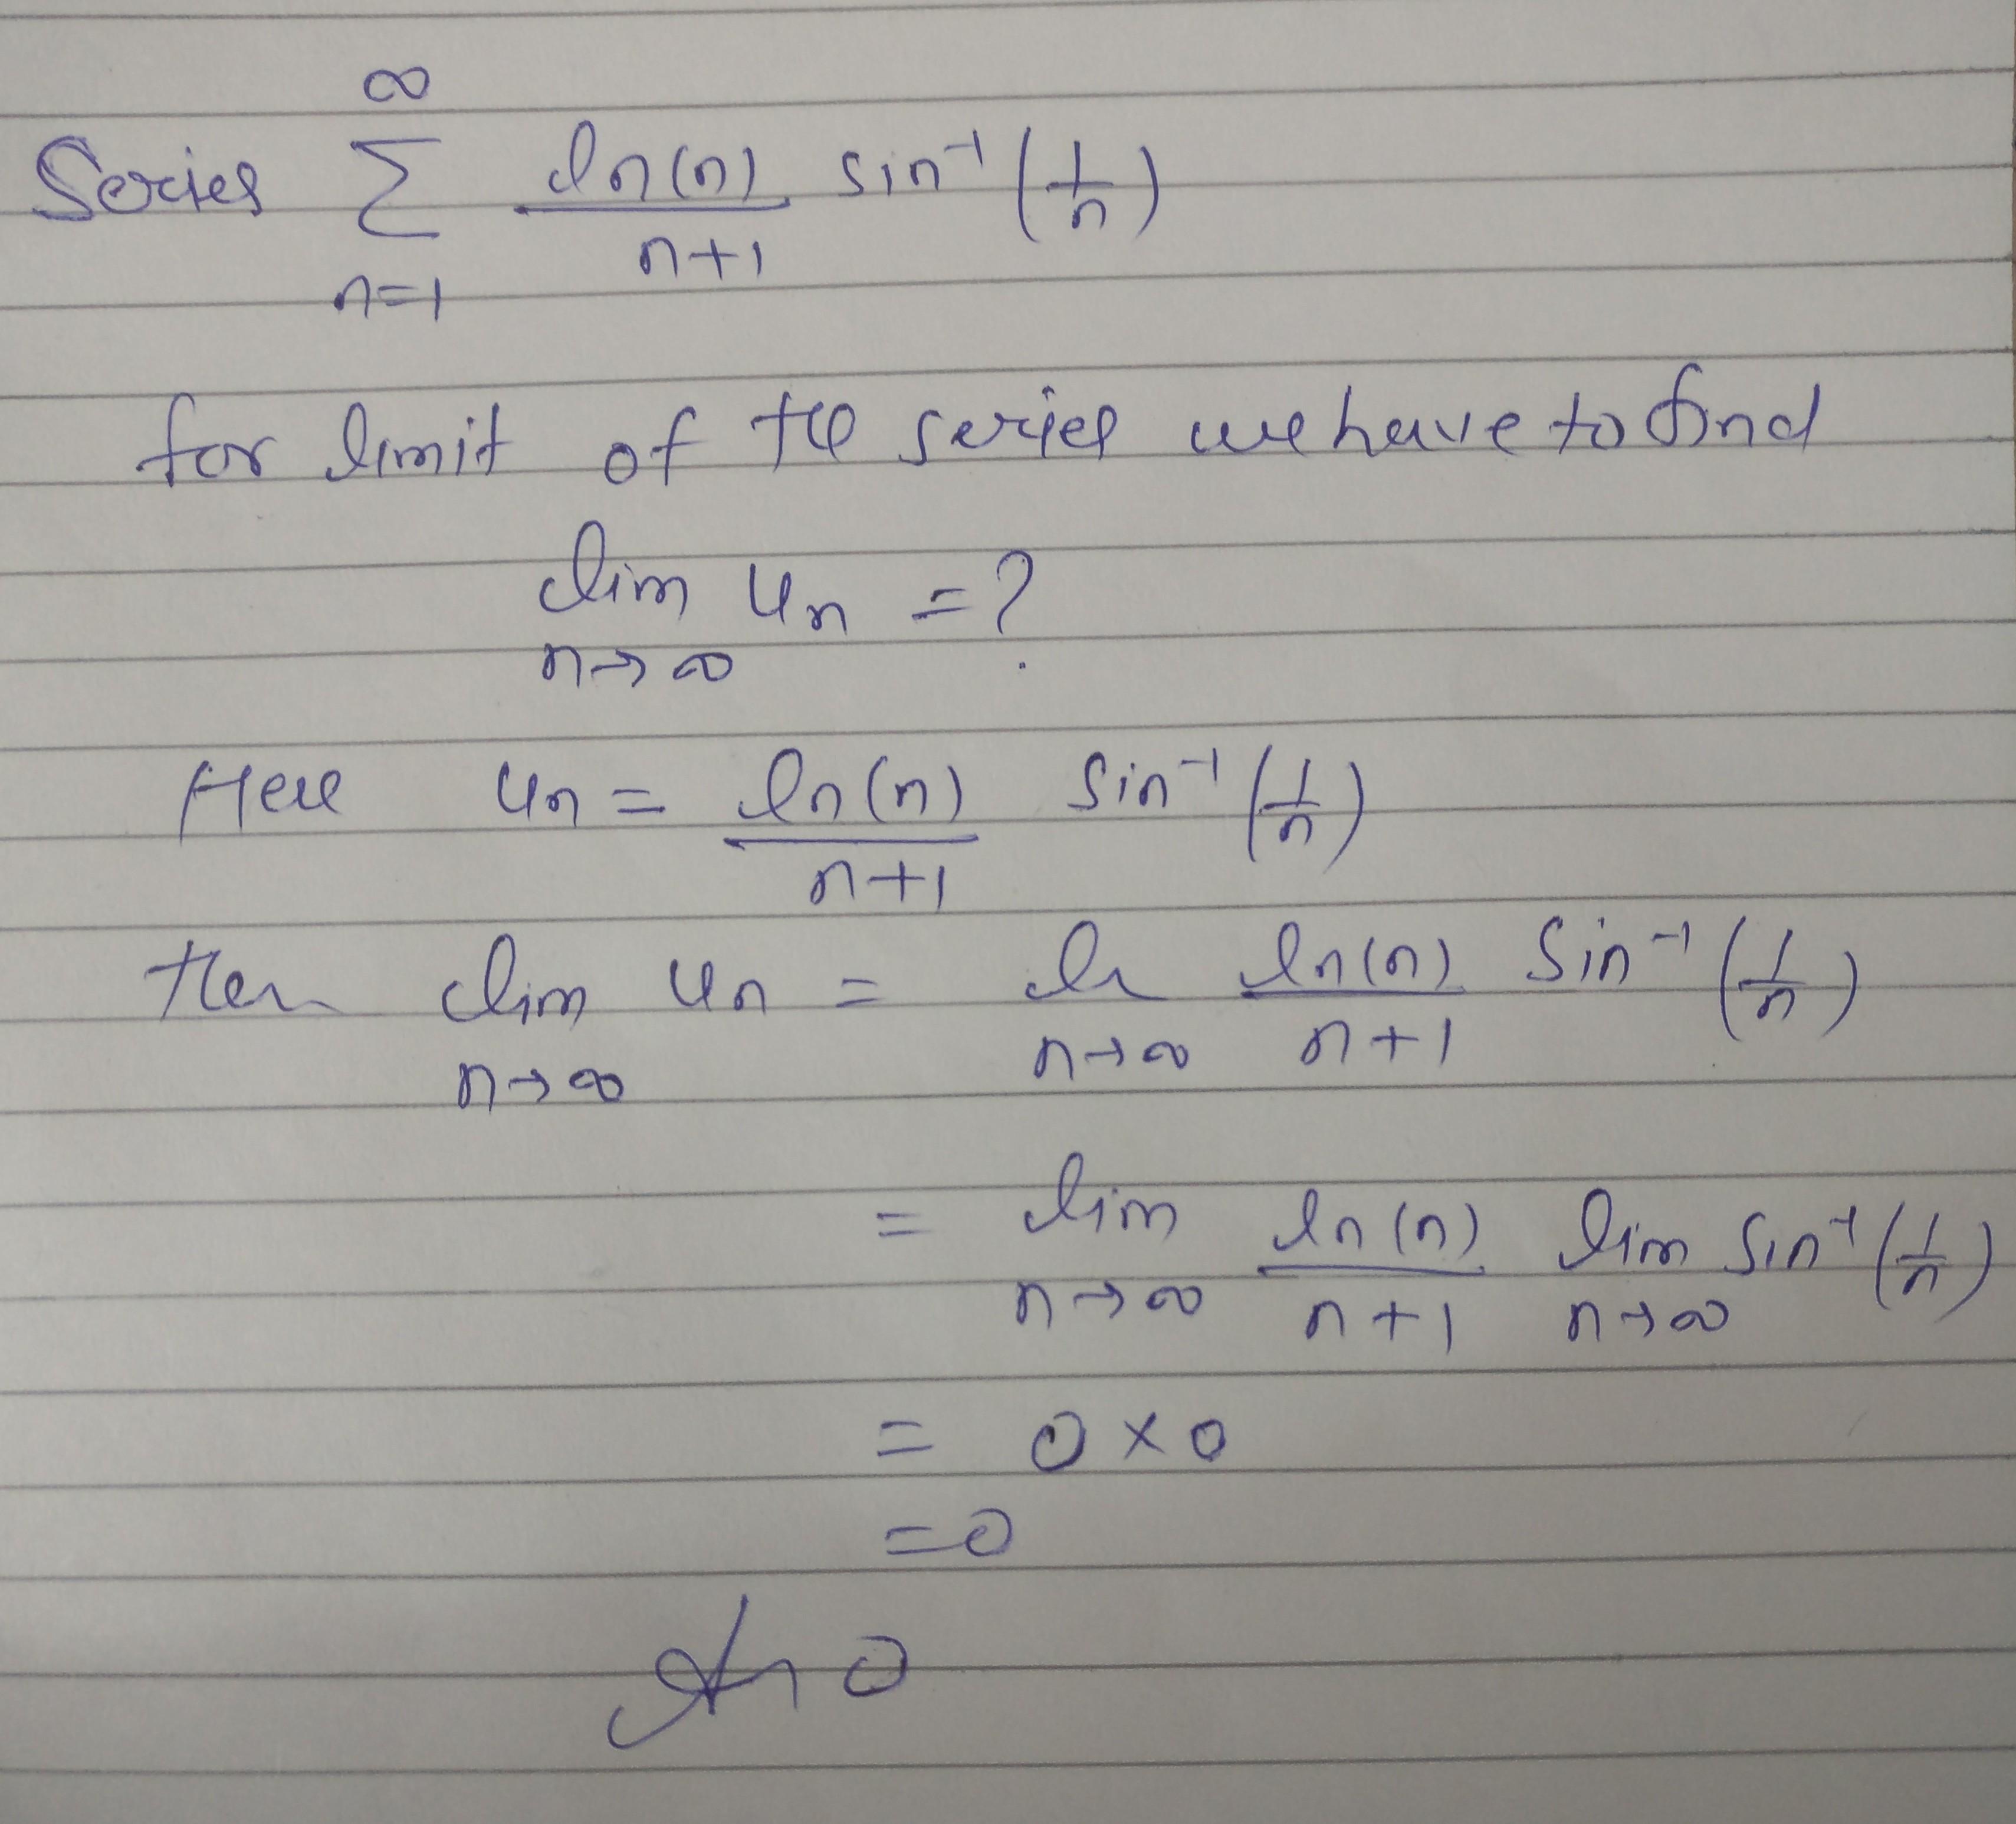 Series ∞∑n=1 ln(n)/(n+1) sin⁻¹(1/n)
for limit of the series we have to find
lim n→∞ un = ?
Here un = ln(n)/(n+1) Sin⁻¹(1/n)
then lim n→∞ un = n→∞ ln(n)/(n+1) Sin⁻¹(1/n)
= lim n→∞ ln(n)/(n+1) lim n→∞ Sin⁻¹(1/n)
= 0 × 0
= 0
0